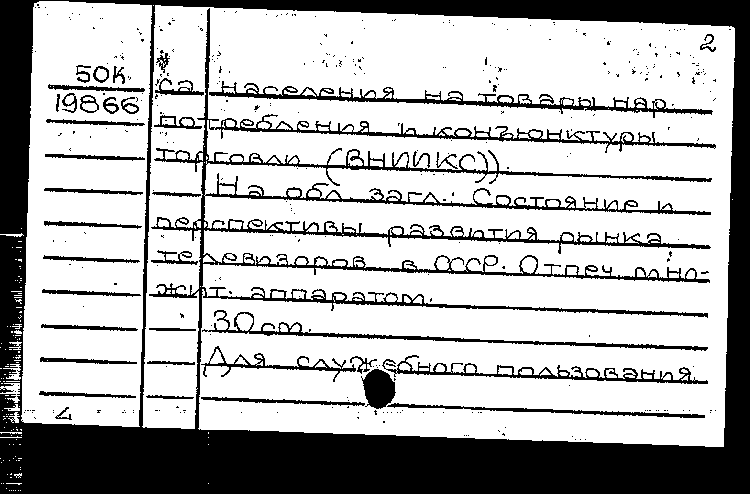 2
50К
19866
са населения на товары нар.
потребления и конъюнктуры
торговли (ВНИИКС)).
На обл. загл.: Состояние и
перспективы развития рынка
телевизоров в СССР. Отпеч. мно-
жит. аппаратом.
30 см.
Для служебного пользования.